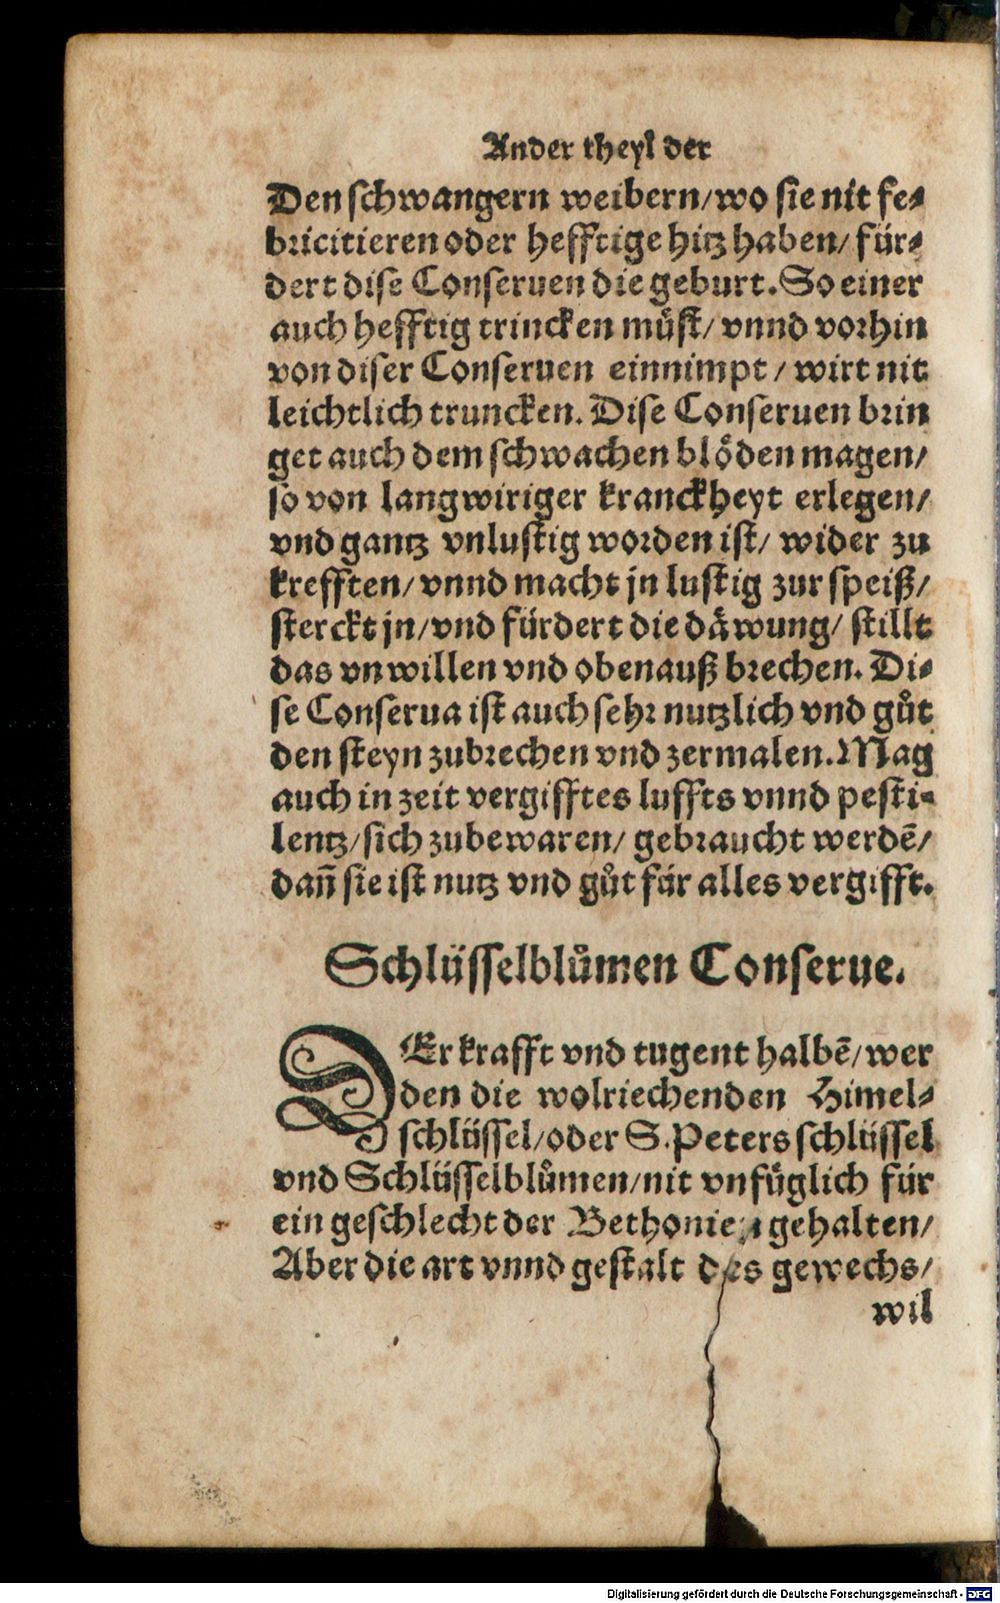 Ander theyl der
Den schwangern weibern/wo sie nit fe⸗
bricitieren oder hefftige hitz haben/ für⸗
dert dise Conseruen die geburt. So einer
auch hefftig trincken müst/ vnnd vorhin
von diser Conseruen einnimpt / wirt nit
leichtlich truncken. Dise Conseruen brin
get auch dem schwachen blöden magen/
so von langwiriger kranckheyt erlegen/
vnd gantz vnlustig worden ist/ wider zu
krefften/ vnnd macht jn lustig zur speiß/
sterckt jn/vnd fürdert die däwung/ stillt
das vnwillen vnd obenauß brechen. Di⸗
se Conserua ist auch sehr nutzlich vnd gůt
den steyn zubrechen vnd zermalen. Mag
auch in zeit vergifftes luffts vnnd pesti⸗
lentz/sich zubewaren/ gebraucht werdẽ/
dañ sie ist nutz vnd gůt für alles vergifft.
Schlüsselblůmen Conserue.
DEr krafft vnd tugent halbẽ/wer
den die wolriechenden Himel⸗
schlüssel/oder S. Peters schlüssel
vnd Schlüsselblůmen/nit vnfüglich für
ein geschlecht der Bethonien gehalten/
Aber die art vnnd gestalt des gewechs/
wil
Digitalisierung gefördert durch die Deutsche Forschungsgemeinschaft - DFG